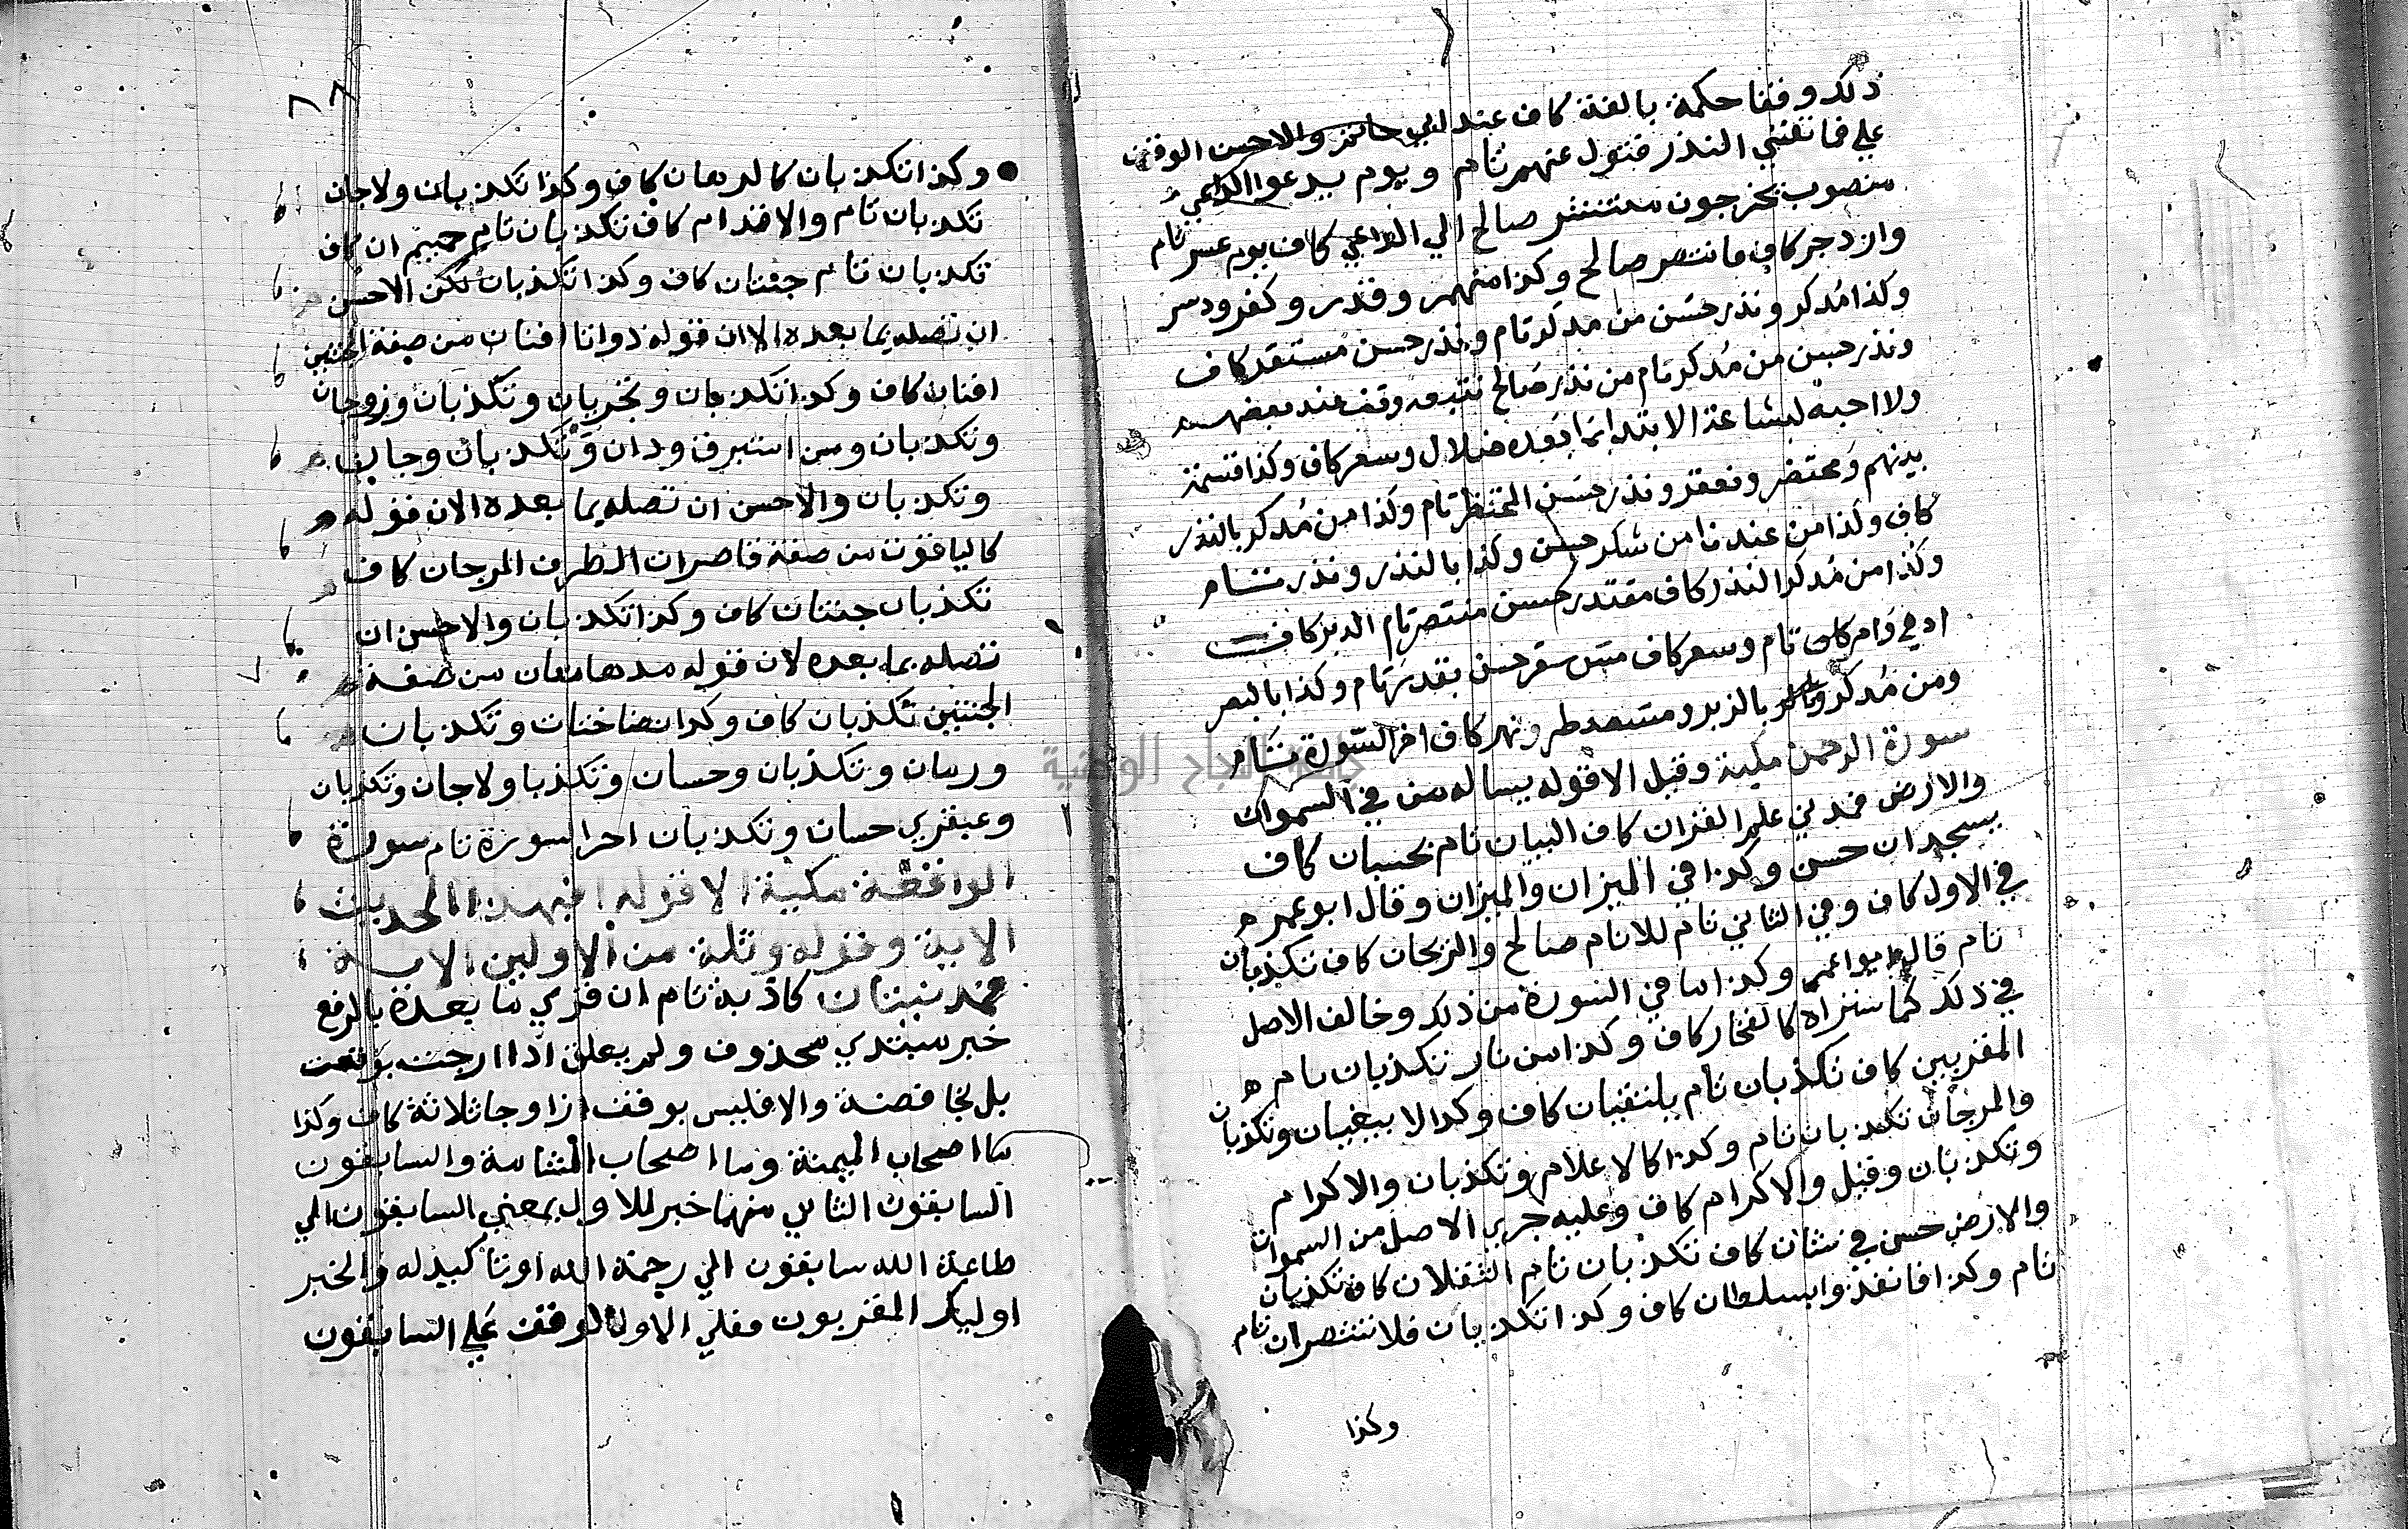 ذلك وقفا حكمة بالغة كاف عند ابي حاتم والاحسن الوقف
علي فما تغني النذر فتول عنهم تام ويوم يدعوا الداعي
منصوب يخرجون منتشر صالح الي الداعي كاف يوم عسر تام
وازدجر كاف فانتصر صالح وكذا منهمر وقدر وكفر ودسر
وكذا مدكر ونذر حسن من مدكر تام ونذر حسن مستقر كاف
ونذر حسن من مدكر تام من نذر صالح نتبعه وقف عند بعضهم
ولا احبه لبشاعة الابتدا بما بعده ضلال وسعر كاف وكذا قسمة
بينهم ومحتضر وفعقر ونذر حسن المحتظر تام وكذا من مدكر بالنذر
كاف وكذا من عندنا من شكر حسن وكذا بالنذر ونذر تام
وكذا من مدكر النذر كاف مقتدر حسن منتصر تام الدبر كاف
ادهي وامر كاف تام وسعر كاف مس سقر حسن بقدر تام وكذا بالبصر
ومن مدكر بالزبر ومستطر ونهر كاف اخر السورة تام
سورة الرحمن مكية وقيل الا قوله يساله من في السموات
والارض فمدني علم القران كاف البيان تام بحسبان كاف
يسجدان حسن وكذا في الميزان والميزان وقال ابو عمرو
في الاول كاف وفي الثاني تام للانام صالح والريحان كاف تكذبان
تام قاله ابو عمرو وكذا ما في السورة من ذلك وخالف الاصل
في ذلك كما ستراه كالفخار كاف وكذا من نار تكذبان تام
المغربين كاف تكذبان تام يلتقيان كاف وكذا لا يبغيان وتكذبان
والمرجان تكذبان تام وكذا كالاعلام وتكذبان والاكرام
وتكذبان وقيل والاكرام كاف وعليه جري الاصل من السموات
والارض حسن في شان كاف تكذبان تام الثقلان كاف تكذبان
تام وكذا فانفذوا بسلطان كاف وكذا تكذبان فلا تنتصران تام
وكذا
وكذا تكذبان كالدهان كاف وكذا تكذبان ولا جان
تكذبان تام والاقدام كاف تكذبان تام حميم ان كاف
تكذبان تام جنتان كاف وكذا تكذبان لكن الاحسن
ان تصله بما بعده الا ان قوله ذواتا افنان من صفة الجنتين
افنان كاف وكذا تكذبان وتجريان وتكذبان وزوجان
وتكذبان ومن استبرق ودان وتكذبان وجان
وتكذبان والاحسن ان تصله بما بعده لان قوله
كالياقوت من صفة قاصرات الطرف المرجان كاف
تكذبان جنتان كاف وكذا تكذبان والاحسن ان
تصله بما بعده لان قوله مدهامتان من صفة
الجنتين تكذبان كاف وكذا نضاختان وتكذبان
ورمان وتكذبان وحسان وتكذبا ولا جان وتكذبان
وعبقري حسان وتكذبان اخر السورة تام سورة
الواقعة مكية الا قوله افبهذا الحديث
الاية وقوله وثلة من الاولين الاية
فمدنيتان كاذبة تام ان قري ما بعده بالرفع
خبر مبتدي محذوف ولم يعلق اذا رجت بوقعت
بل بخافضة والا فليس بوقف ازواجا ثلاثة كاف وكذا
ما اصحاب الميمنة وما اصحاب المشامة والسابقون
السابقون الثاني منهما خبر للاول بمعني السابقون الي
طاعة الله سابقون الي رحمة الله او تاكيد له والخبر
اوليك المقربون فعلي الاول الوقف علي السابقون